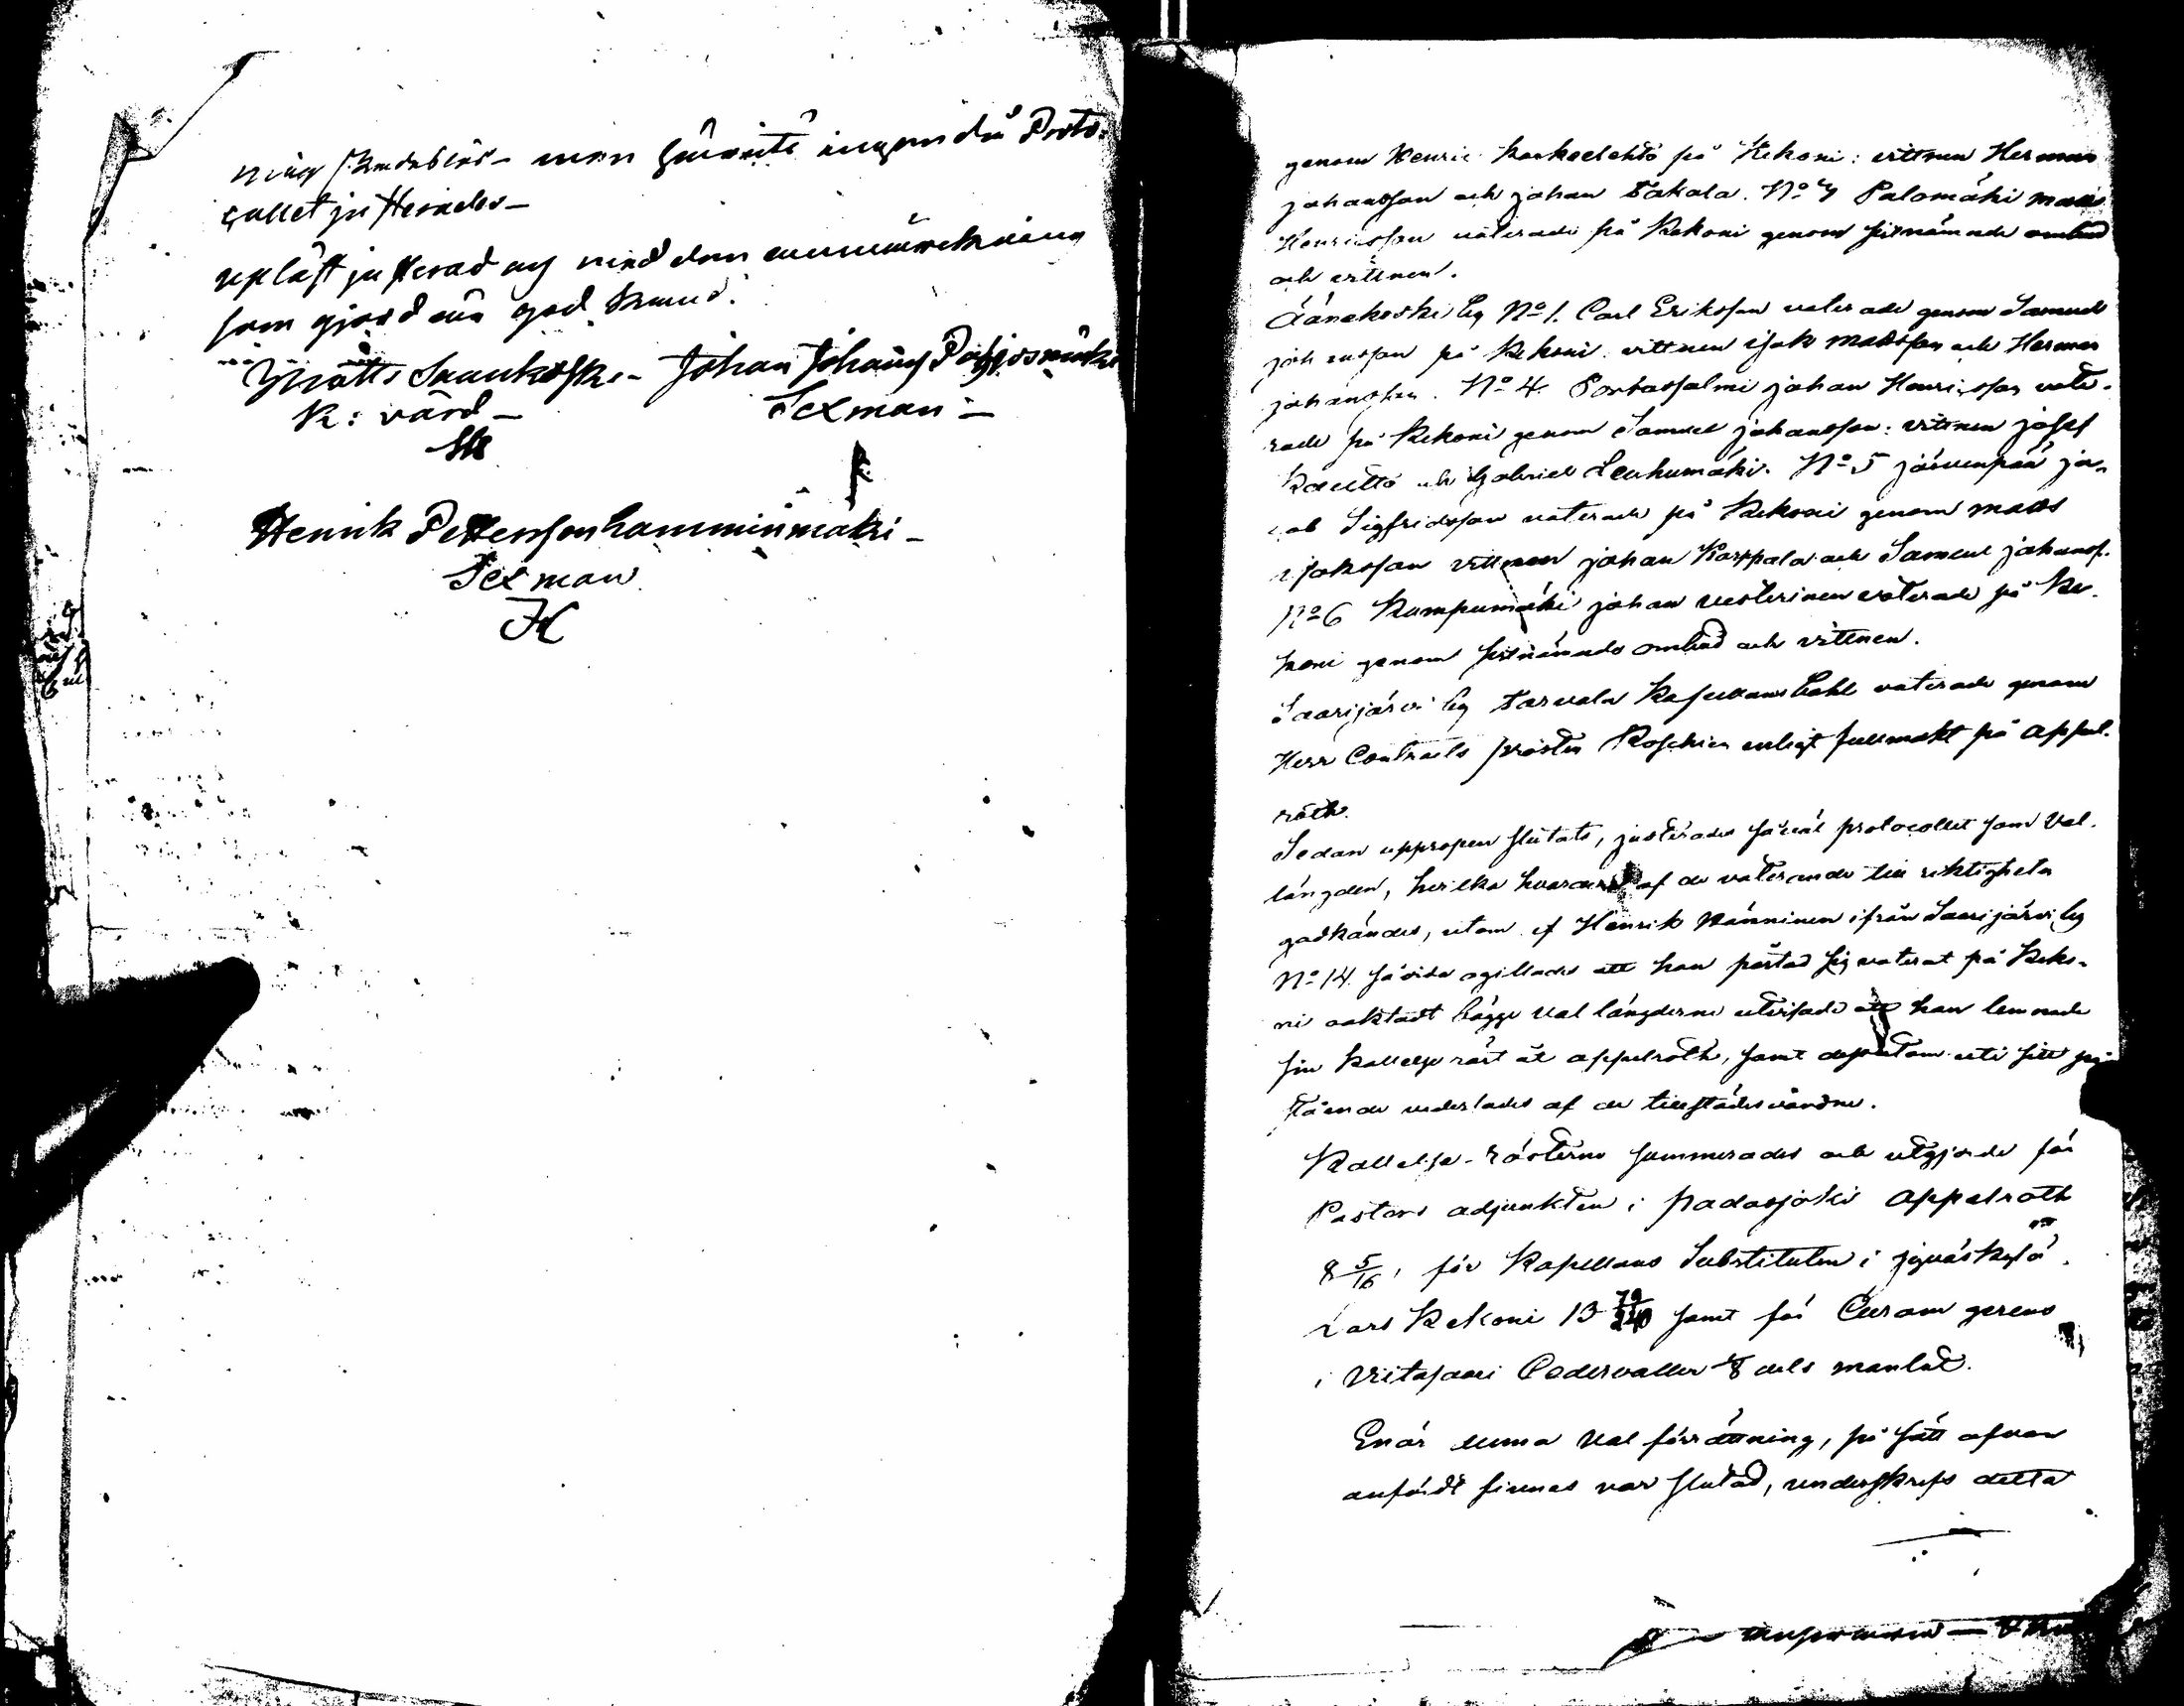 ning men hinnte ingendå Proto-
collet justerades-
upläst justerad och med den anmärkning
som gjord är god känd.
Matts Saukoski- Johan Johans Pohjosmäki
K: värd- Sexman-
Henrik Pettersson Lamminmäki-
Sexman
genom Henric Koukeelehto på Kekoni: vittnen Herman
johansson och johan Takala. No 7 Palomäki mats
Henricsson voterade på Kekoni genom sistnämnde ombud
och vittnen.
Äänekoski by No 1. Carl Eriksson voterade genom Samuel
johansson på Kekoni vittnen isak matsson och Herman
johansson. No 4. Porkasalmi johan Henricsson vote-
rade på Kekoni genom Samuel johansson: vittnen josef
Kautto och Gabriel Leuhumäki. No 5 järvenpää ja-
cob Sigfridsson voterade på Kekoni genom mats
isaksson vittnen johan Karppala och Samuel johanss.
No 6 Kumpumäki johan vesterinen voterade på Ke-
koni genom sistnämnde ombud och vittnen.
Saarijärvi by Tarvala Kapellans bohl voterade genom
Herr Contracts prosten Roschier enligt fullmakt på Appel-
roth.
Sedan uppropen slutats, justerades såväl protocollet som Val-
längden, hvilka hvardera af de voterande till riktigheten
godkändes, utom af Henrik Känninen ifrån Saarijärvi by
No 14. såvida ogillades att han påstod sig voterat på Keko-
ni oaktadt bägge val längderne utvisade att han lemnade
sin Kallelse röst åt Appelroth, samt dessutom uti sitt på-
stående vederlades af de tillstädesvarande.
Kallelse-rösterne summerades och utgjorde för
Pastors adjunkten i padasjoki Appelroth
8 5/16, för Kapellans Substituten i jyväskylä
Lars Kekoni 13 samt för Curam gerens
i Viitasaari Cedervaller dels mantal.
Enär denna Val förrättning, på sätt ofvan
anfördt finnes var slutad, underskrefs detta